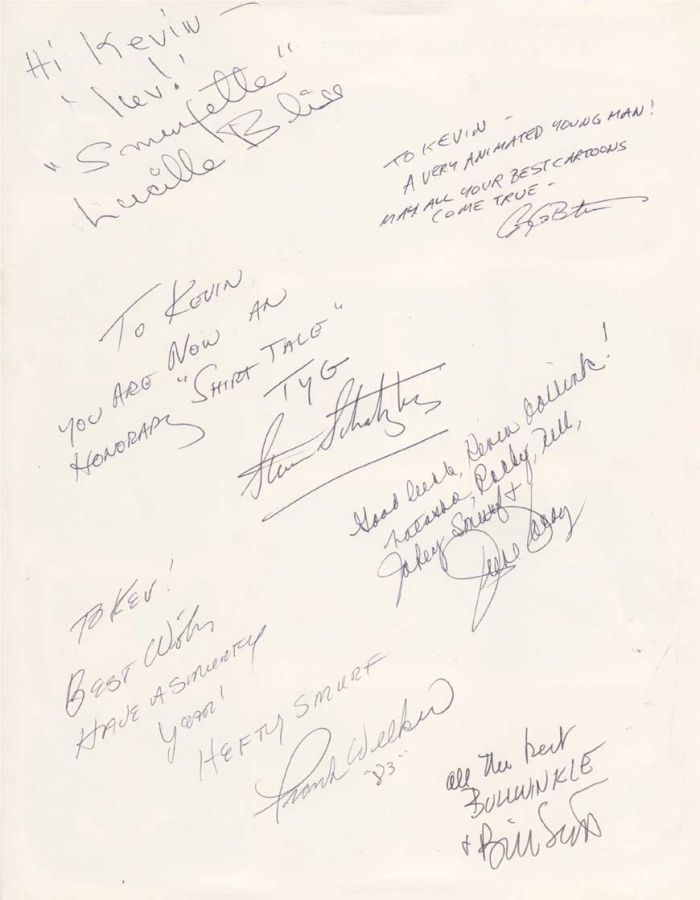 Hi Kevin -
"Kev!"
"Smurfette"
Lucille Bliss
TO KEVIN -
A VERY ANIMATED YOUNG MAN!
MAY ALL YOUR BEST CARTOONS
COME TRUE -
TO KEVIN,
YOU ARE NOW AN
HONORARY "SHIRT TALE"
TYG
Steve Schatzberg
Good luck, Kevin
Natasha, Rocky, Nell,
Jokey Smurf +
June Foray
TO KEV!
BEST Wishes
HAVE A SMURFY
Year!
HEFTY SMURF
Frank Welker
"83"
all the best
BULLWINKLE
+ Bill Scott